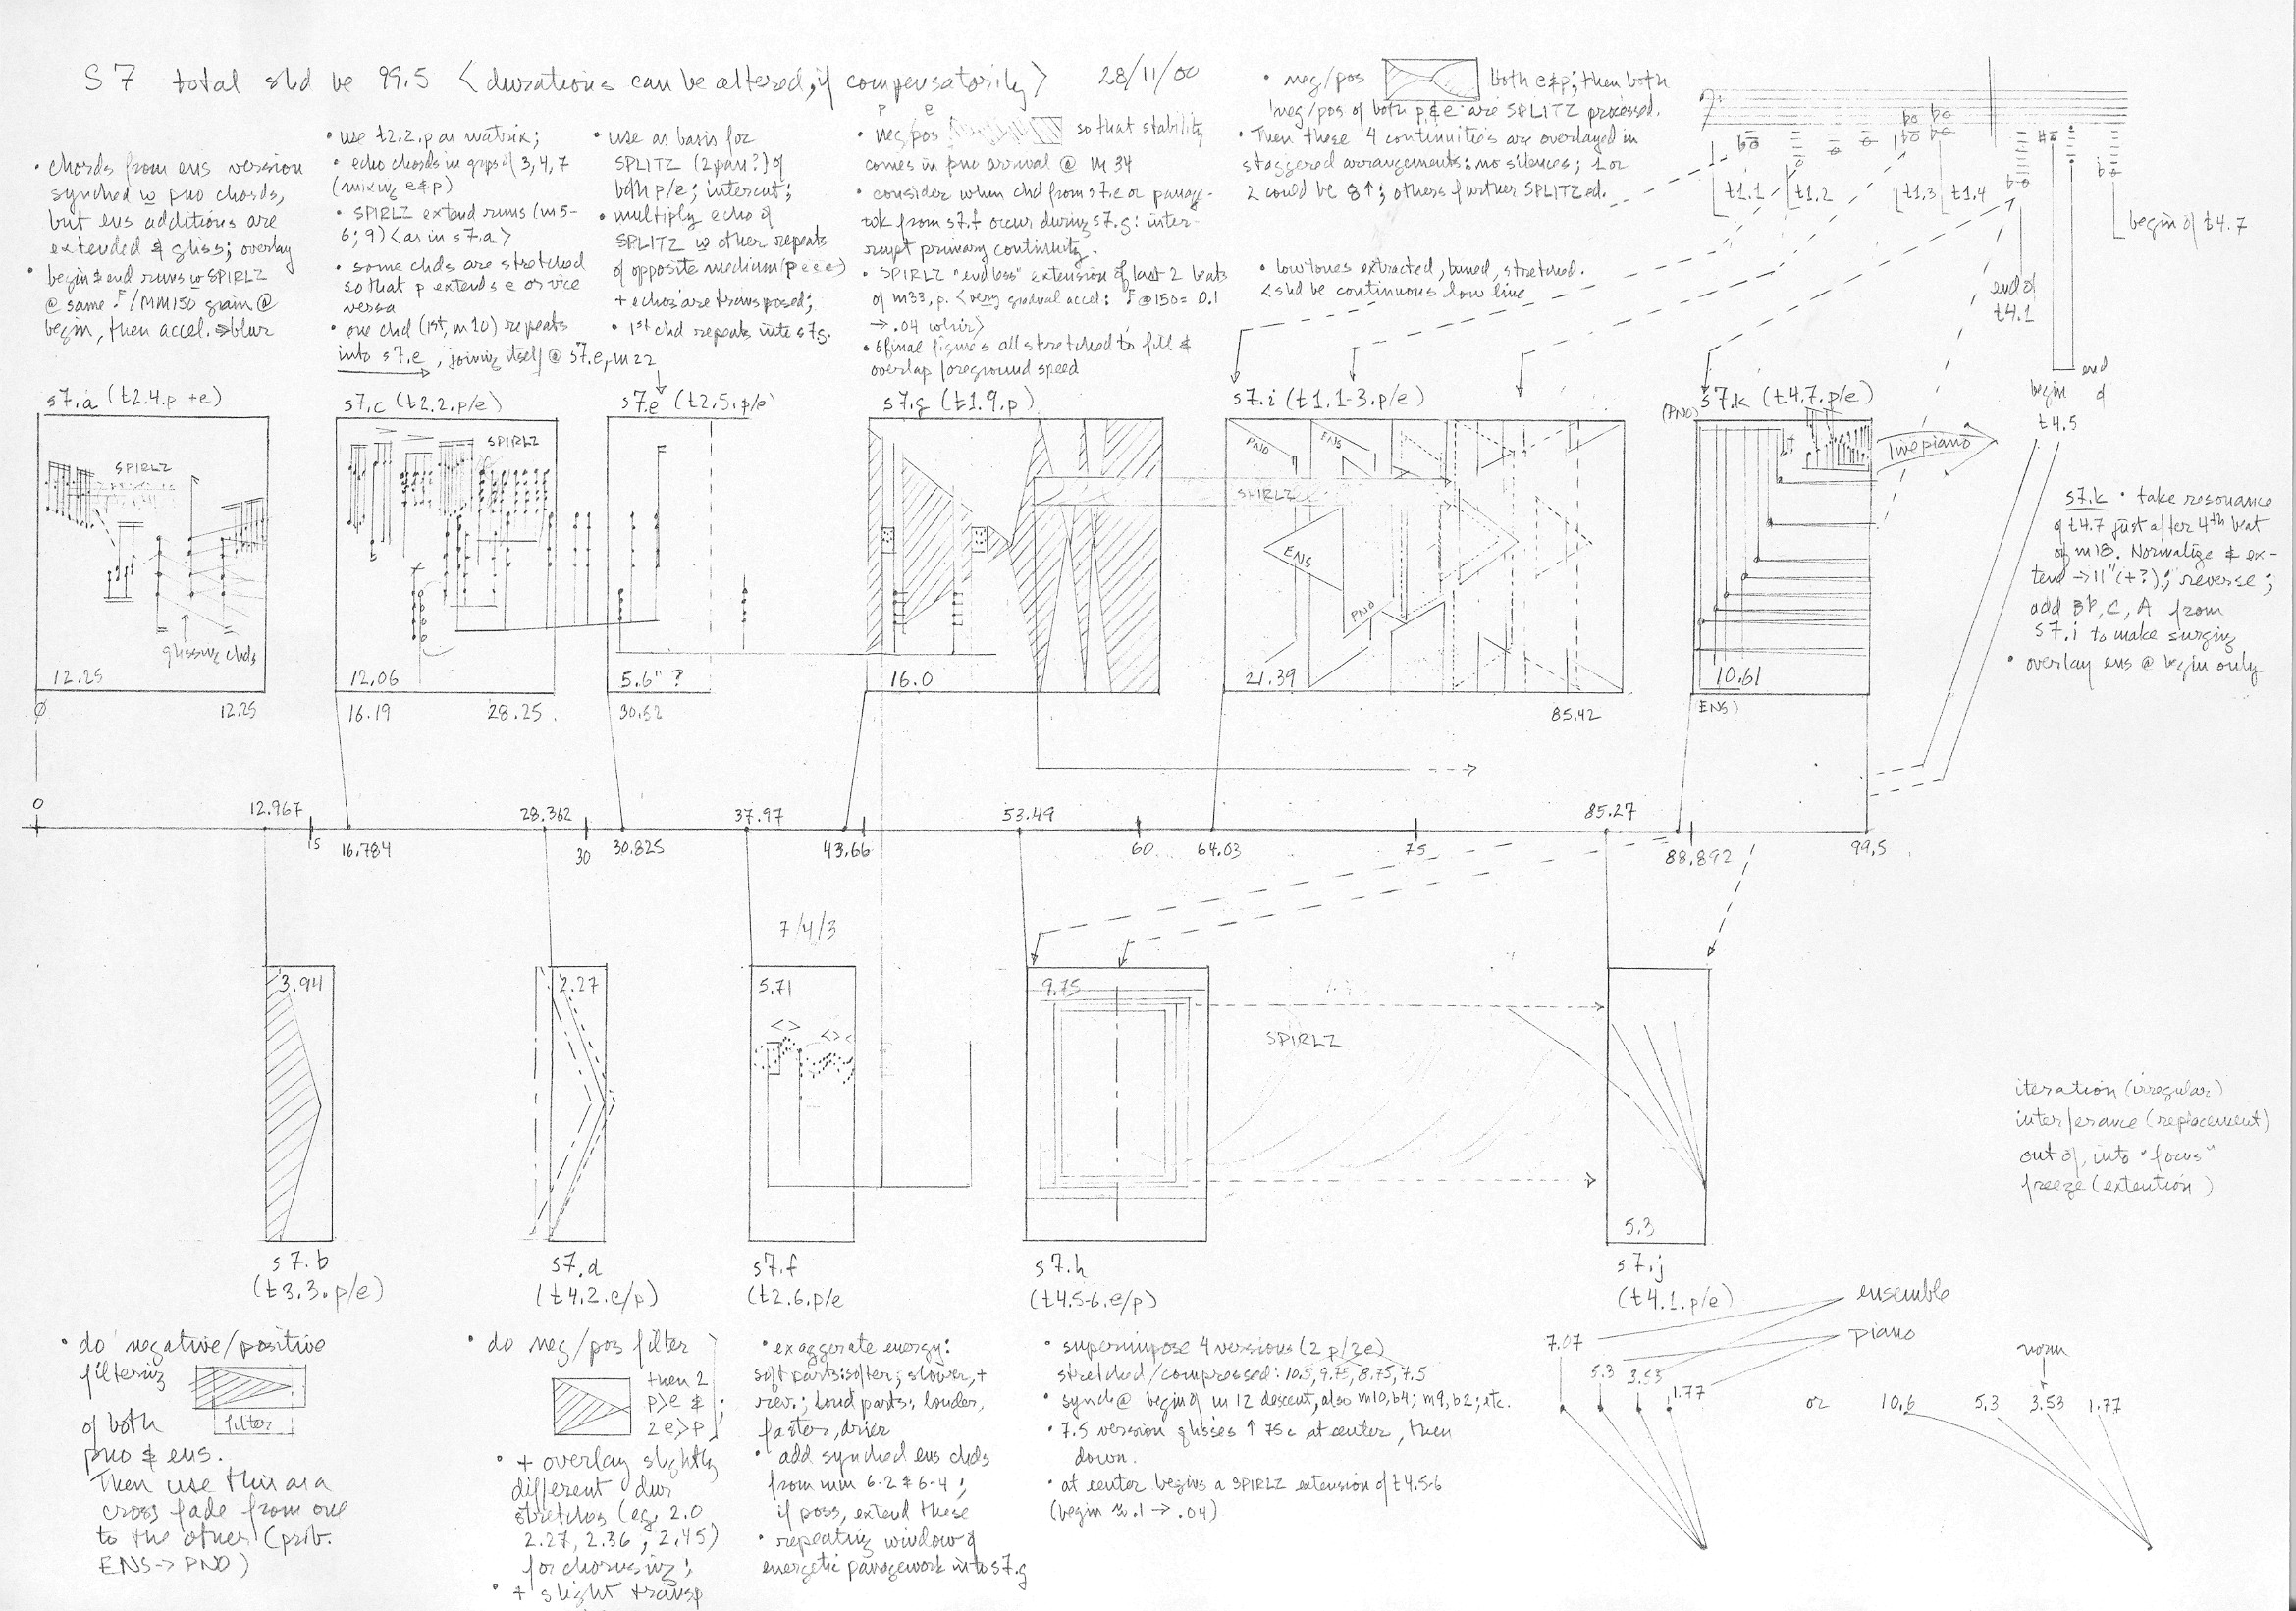 S7 total shd be 99.5 <durations can be altered, if compensatorily> 28/11/00
• chords from ens version
synched w pno chords,
but ens additions are
extended & gliss; overlay
• begin & end runs w SPIRLZ
@ same /MM150 grain @
begin, then accel. → blur
• use t2.2.p as matrix;
• echo chords in grps of 3, 4, 7
(mixing e&p)
• SPIRLZ extend runs (m5-
6; 9) <as in s7.a>
• some chds are stretched
so that p extends e or vice
versa
• one chd (1st, m10) repeats
into s7.e, joining itself @ s7.e, m22
• use as basis for
SPLITZ (2pan?) of
both p/e; intercut;
• multiply echo of
SPLITZ w other repeats
of opposite medium (p e e e)
+ echos are transposed;
• 1st chd repeats into s7g.
p e
• neg/pos so that stability
comes in pno arrival @ m 34
• consider when chd from s7.e or passage-
wk from s7.f occur during s7.g: inter-
rupt primary continuity.
• SPIRLZ "endless" extension of last 2 beats
of m33, p. <very gradual accel: @150 = 0.1
→ .04 whir>
• 6 final figures all stretched to fill &
overlap foreground speed
• neg/pos both e&p; then both
neg/pos of both p & e are SPLITZ processed.
• Then these 4 continuities are overlayed in
staggered arrangements: no silences; 1 or
2 could be 8↑; others further SPLITZed.
• low tones extracted, tuned, stretched.
<shd be continuous low line
t1.1 t1.2 t1.3 t1.4
begin of t4.7
end of
t4.1
begin end
of
t4.5
s7.a (t2.4.p +e)
SPIRLZ
glissing chds
12.25
0 12.25
s7.c (t2.2.p/e)
SPIRLZ
12.06
16.19 28.25
s7.e (t2.5.p/e)
5.6" ?
30.52
s7.g (t1.9.p)
16.0
SPIRLZ
s7.i (t1.1-3.p/e)
PNO ENS
ENS
PNO
21.39
85.42
(PNO) s7.k (t4.7.p/e)
live piano
10.61
ENS)
s7.k • take resonance
of t4.7 just after 4th beat
of m18. Normalize & ex-
tend → 11" (+?); reverse;
add Bb, C, A from
s7.i to make surging
• overlay ens @ begin only
0 12.967 28.362 37.97 53.49 85.27
15 16.784 30 30.825 43.66 60 64.03 75 88.892 99.5
7/4/3
3.94
2.27
5.71
<> <><
9.75
SPIRLZ
5.3
iteration (irregular)
interferance (replacement)
out of, into "focus"
freeze (extention)
s7.b
(t3.3.p/e)
s7.d
(t4.2.e/p)
s7.f
(t2.6.p/e
s7.h
(t4.5-6.e/p)
s7.j
(t4.1.p/e)
• do negative/positive
filtering
filter
of both
pno & ens.
Then use this as a
cross fade from one
to the other (prob.
ENS -> PNO)
do neg/pos filter
then 2
p>e &
2 e>p
• + overlay slightly
different dur
stretches (eg. 2.0
2.27, 2.36, 2.45)
for chorusing;
• + slight transp
• exaggerate energy:
soft parts: softer, slower, +
rev.; loud parts: louder,
faster, drier
• add synched ens chds
from mm 6-2 & 6-4;
if poss, extend these
• repeating window of
energetic passagework into s7.g
• superimpose 4 versions (2 p/2e)
stretched/compressed: 10.5, 9.75, 8.75, 7.5
• synch @ begin of m 12 descent, also m10, b4; m9, b2; etc.
• 7.5 version glisses ↑ 75c at center, then
down.
• at center begins a SPIRLZ extension of t4.5-6
(begin w .1 → .04)
ensemble
piano
7.07
5.3 3.53
1.77
or
norm
10.6 5.3 3.53 1.77